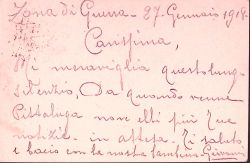 Zona di Guerra - 27 - Gennaio 191
Carissima,
Mi meraviglia questo lungo
silenzio, Da quando venne
Pittaluga non ebbi più tue
notizie - in attesa. Ti saluto
e bacio con le nostre